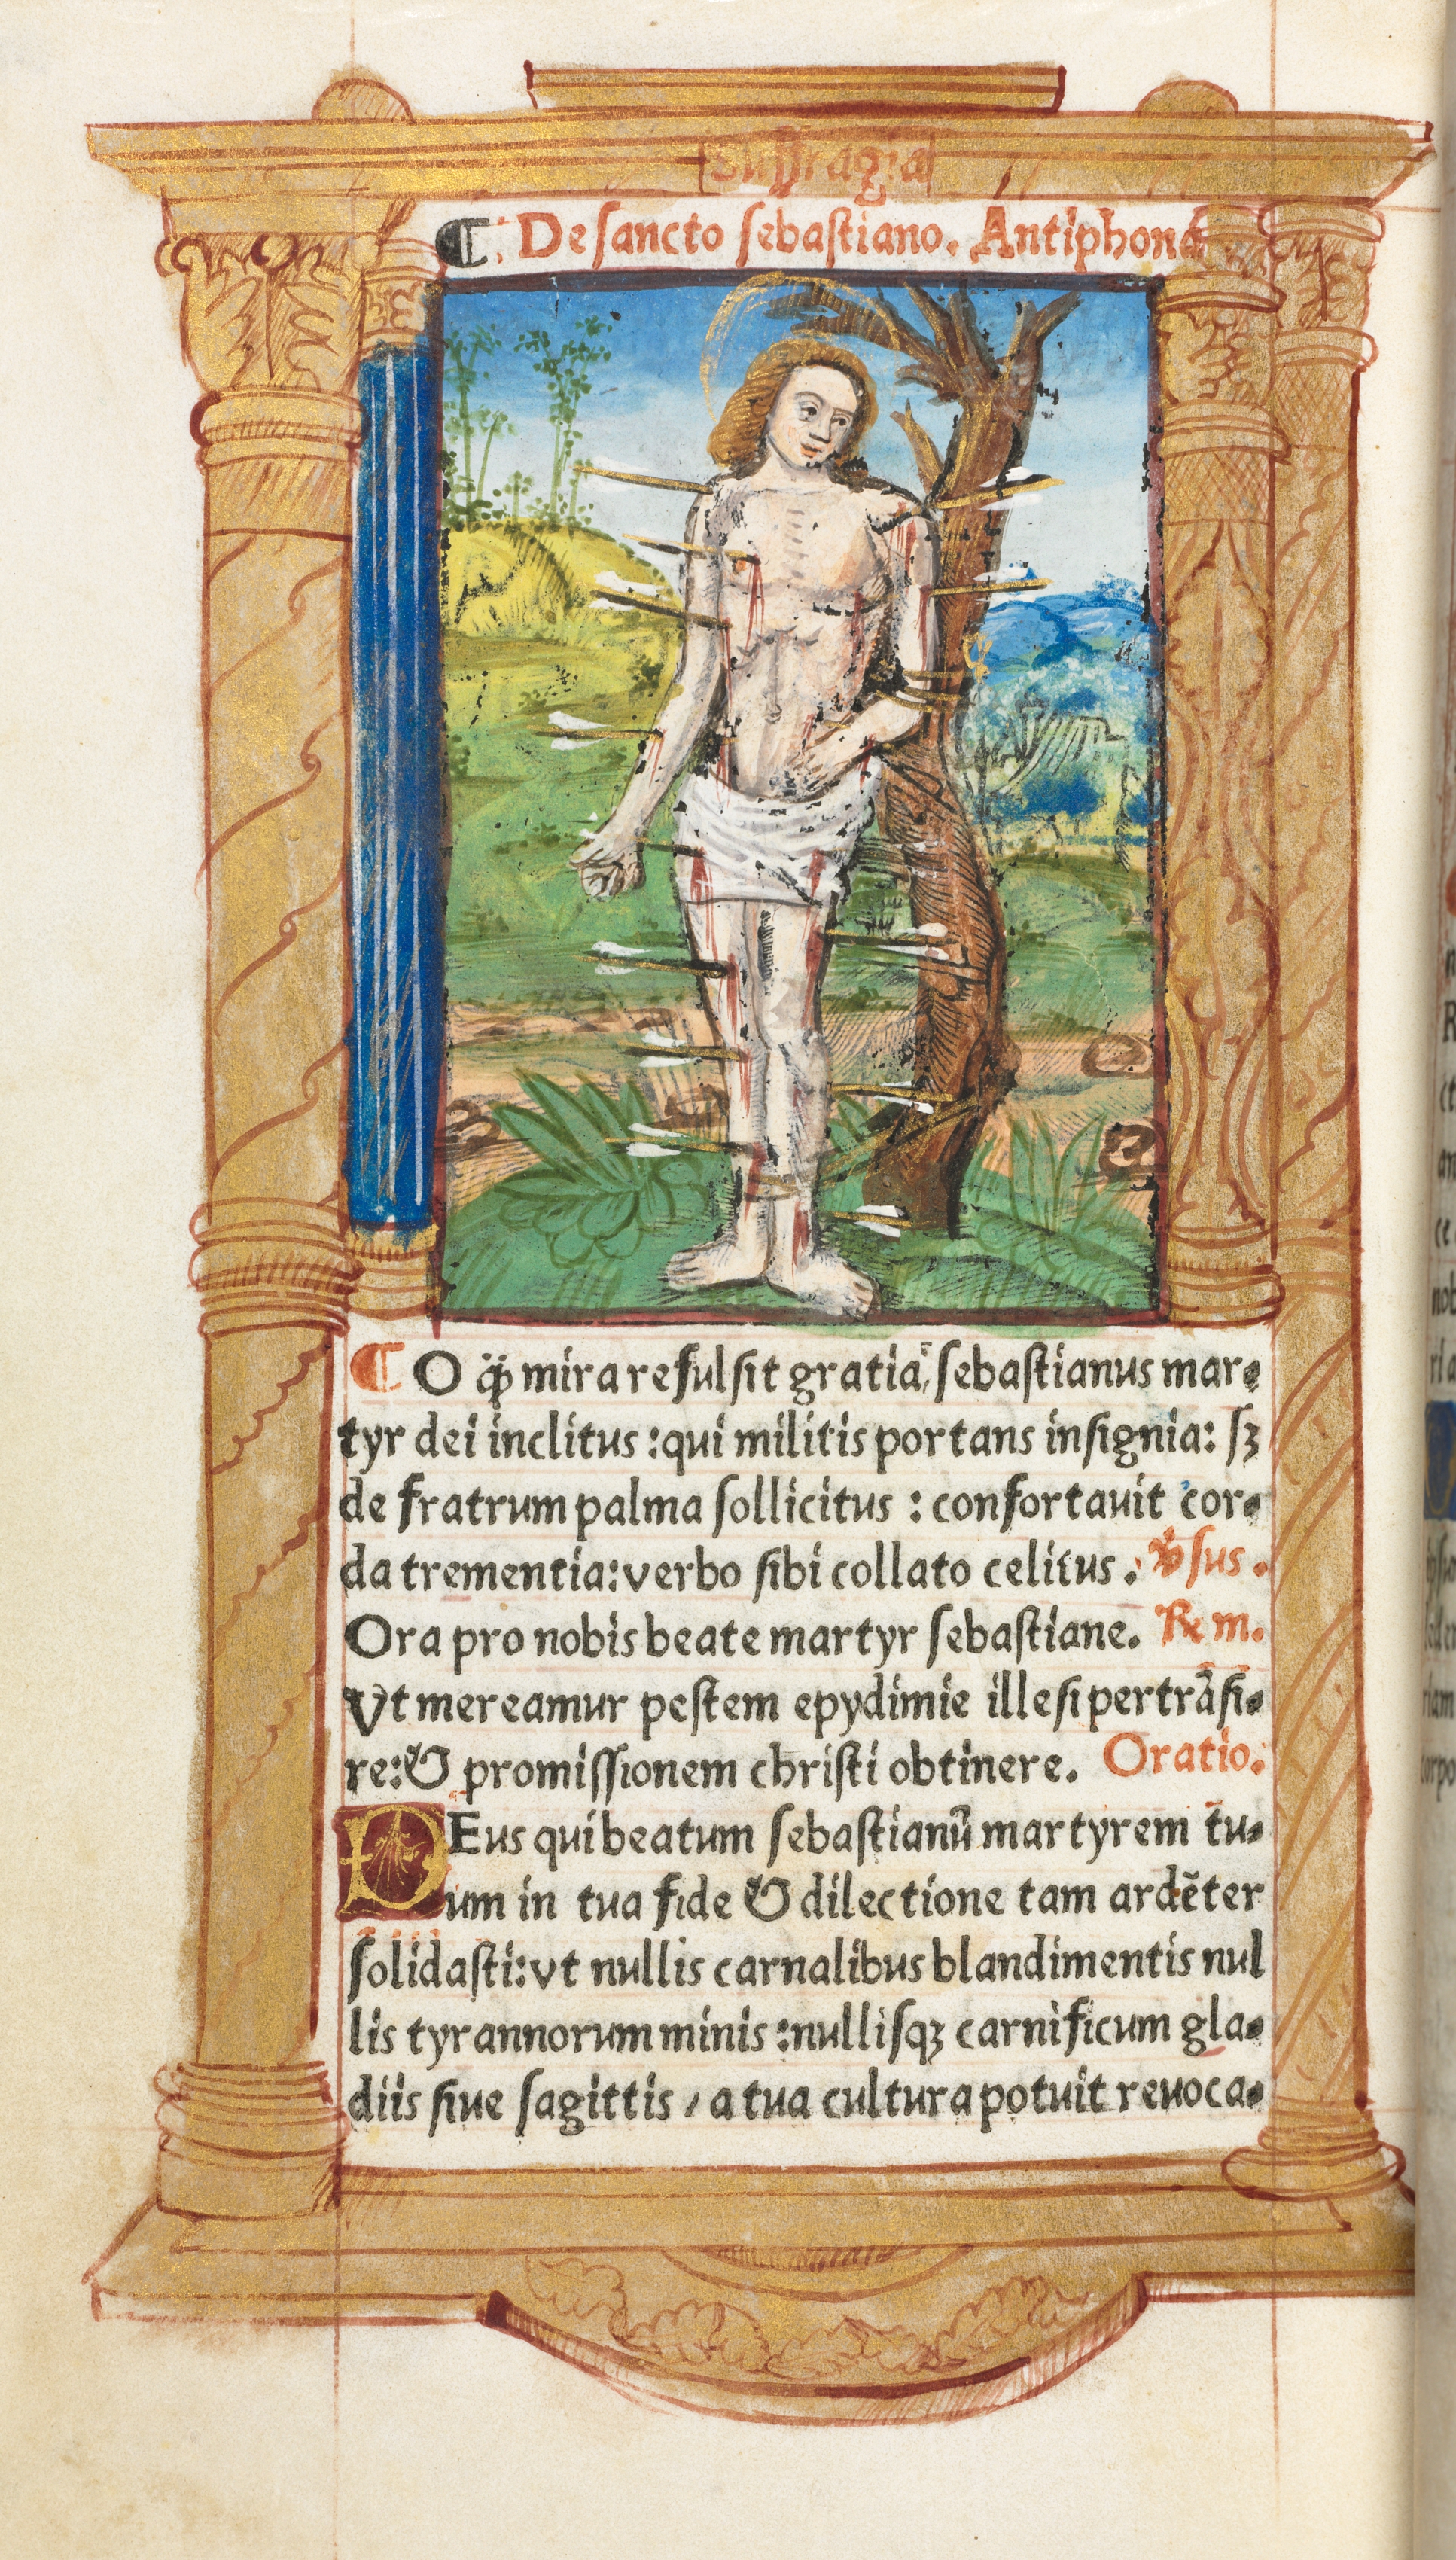 Suffragia
¶ De sancto sebastiano. Antiphona
¶ O q̃ꝫ mira refulsit gratia, sebastianus mar-
tyr dei inclitus : qui militis portans insignia: sꝫ
de fratrum palma sollicitus : confortauit cor-
da trementia: verbo sibi collato celitus. v̉sus.
Ora pro nobis beate martyr sebastiane. ℞ m.
Vt mereamur pestem epydimie illesi pertrãsi-
re: & promissionem christi obtinere. Oratio.
DEus qui beatum sebastianũ martyrem tu-
um in tua fide & dilectione tam ardẽter
solidasti: vt nullis carnalibus blandimentis nul
lis tyrannorum minis : nullisqꝫ carnificum gla-
diis siue sagittis / a tua cultura potuit reuoca-